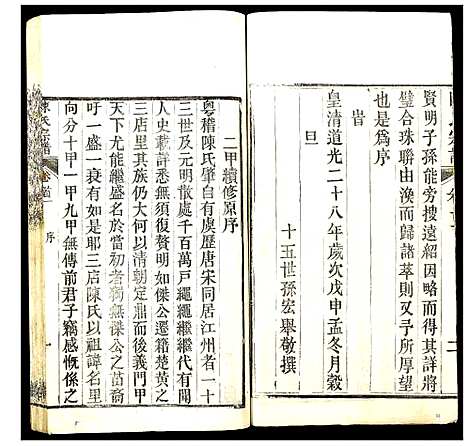 賢明子孫能旁搜遠紹因略而得其詳將
璧合珠聯由渙而歸諸萃則予所厚望
也是為序
旹
皇清道光二十八年歲次戊申孟冬月穀
旦
十五世孫宏舉敬撰
二甲續修原序
粵稽陳氏肇自有虞歷唐宋同居江州一十
三世及元明散處千百萬戶繩繩繼繼代有聞
人史載譜悉無須復贅明初如傑公遷籍楚黃之
三店里其族乃大以清朝定鼎而後義門甲
天下尤能繼盛名於當初者獨無傑公之苗裔
吁一盛一衰有如是耶三店陳氏以祖諱名里
向分十甲一甲九甲無傳前君子竊感慨係之
陳氏宗譜
卷首
序
一
二